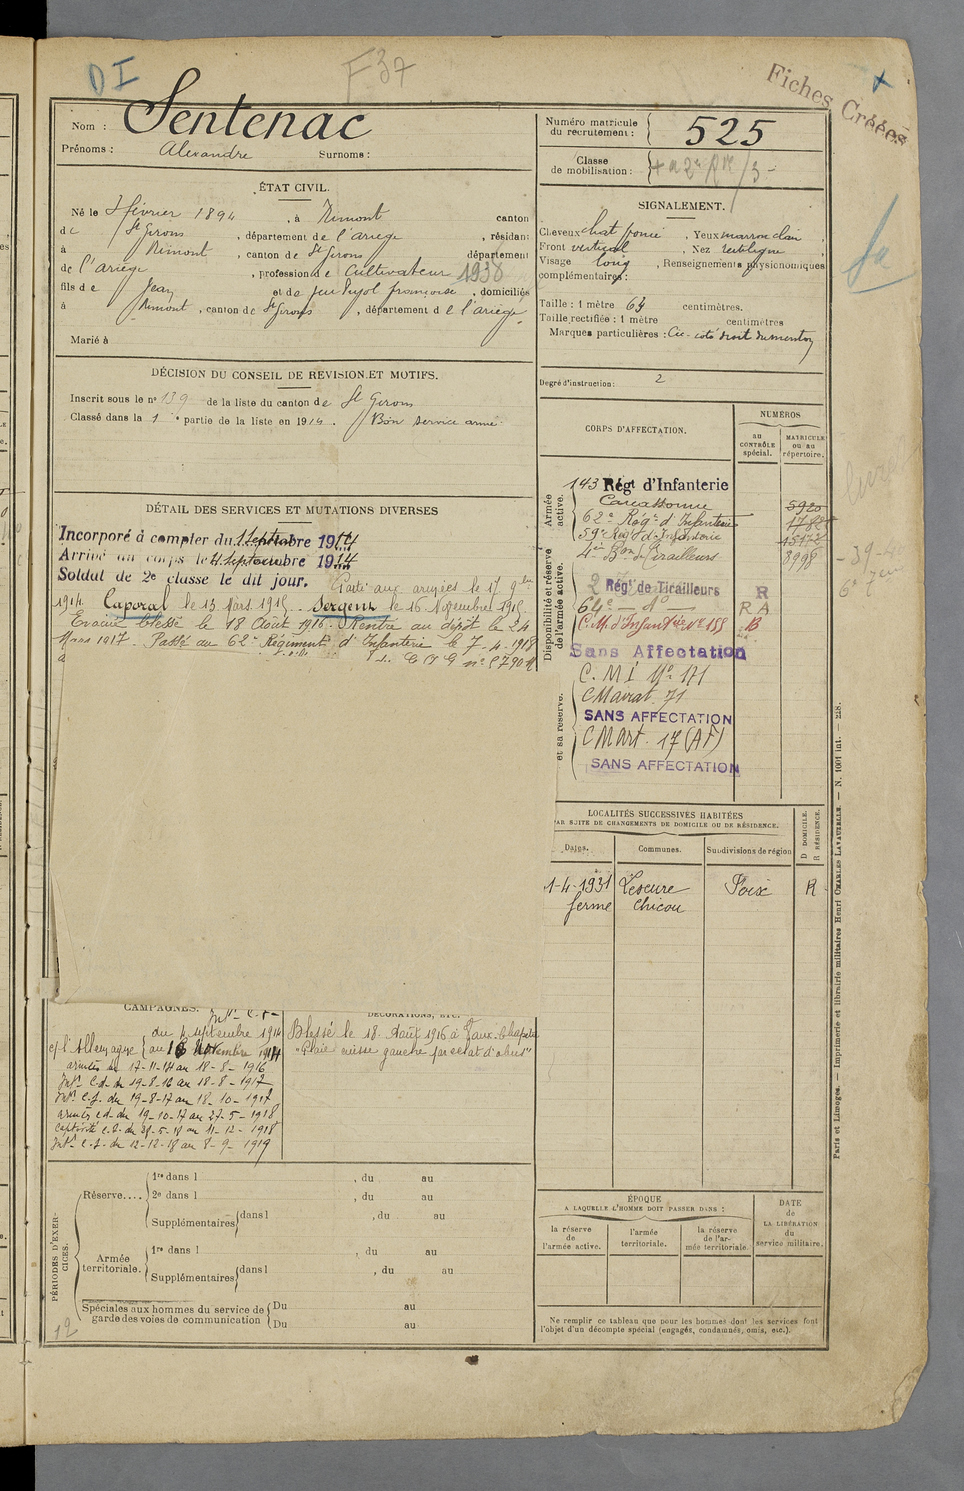 D I
F 37
Fiches Créées
Nom : Sentenac
Prénoms : Alexandre Surnoms :
Numéro matricule du recrutement : 525
Classe de mobilisation :
ÉTAT CIVIL.
Né le 3 février 1894, à Rimont canton
de St Girons, département de l'ariège, résidant
à Rimont, canton de St Girons département
de l'ariège, profession de Cultivateur 1938
fils de Jean et de feu Pujol françoise, domiciliés
à Rimont, canton de St Girons, département de l'ariège
Marié à
SIGNALEMENT.
Cheveux chat foncé, Yeux marron clair,
Front vertical, Nez rectiligne
Visage long, Renseignements physionomiques
complémentaires :
Taille : 1 mètre 64 centimètres.
Taille rectifiée : 1 mètre centimètres
Marques particulières : Cic. coté droit du menton
Degré d'instruction : 2
DÉCISION DU CONSEIL DE REVISION ET MOTIFS.
Inscrit sous le no 139 de la liste du canton de St Girons
Classé dans la 1e partie de la liste en 1914. Bon service armé.
DÉTAIL DES SERVICES ET MUTATIONS DIVERSES
Incorporé à compter du 1 Septembre 1914
Arrivé au corps le 4 Septembre 1914
Soldat de 2e classe le dit jour. Parti aux armées le 17 9bre
1914. Caporal le 13 Mars 1915. Sergent le 16 Novembre 1915.
Evacué blessé le 18 Août 1916. Rentré au dépôt le 24
Mars 1917. Passé au 62e Régiment d'Infanterie le 7-4-1918
CORPS D'AFFECTATION.
NUMÉROS
au CONTRÔLE spécial.
MATRICULE ou au répertoire.
Armée active.
Disponibilité et réserve de l'armée active.
et sa réserve.
143 Régt d'Infanterie
Carcassonne 5920
62e Régt d'Infanterie
59e Regt d'Infanterie
4e Bon de Tirailleurs 3998
2 Régt de Tirailleurs R
64e R A
C. M. d'Infanterie No 155 B
Sans Affectation
C. M I No 171
C Maurat 71
SANS AFFECTATION
C Mart. 17 (AF)
SANS AFFECTATION
LOCALITÉS SUCCESSIVES HABITÉES
PAR SUITE DE CHANGEMENTS DE DOMICILE OU DE RÉSIDENCE.
Dates. Communes. Subdivisions de région
D DOMICILE. R RÉSIDENCE.
1-4-1931 Lescure Foix R
ferme Chicou
CAMPAGNES.
Intr. C. S-
du 4 septembre 1914
c/ l'Allemagne au 16 Novembre 1914
armées du 17-11-14 au 18-8-1916
Intr. C.d. du 19-8-16 au 18-8-1917
Intr. C.S. du 19-8-17 au 18-10-1917
armées c.d. du 19-10-17 au 27-5-1918
Captivité C.S. du 28-5-18 au 11-12-1918
Intr. C.S. du 12-12-18 au 8-9-1919
DÉCORATIONS, ETC.
Blessé le 18 Août 1916 à Vaux-Chapitre
"Plaie cuisse gauche par éclat d'obus"
PÉRIODES D'EXERCICES.
Réserve....
1re dans l , du au
2e dans l , du au
Supplémentaires dans l , du au
Armée territoriale.
1re dans l , du au
Supplémentaires dans l , du au
Spéciales aux hommes du service de garde des voies de communication
Du au
Du au
12
ÉPOQUE
A LAQUELLE L'HOMME DOIT PASSER DANS :
la réserve de l'armée active.
l'armée territoriale.
la réserve de l'armée territoriale.
DATE de LA LIBÉRATION du service militaire.
Ne remplir ce tableau que pour les hommes dont les services font
l'objet d'un décompte spécial (engagés, condamnés, omis, etc.).
Paris et Limoges. — Imprimerie et librairie militaires Henri CHARLES LAVAUZELLE. — N. 1001 int. — 228.